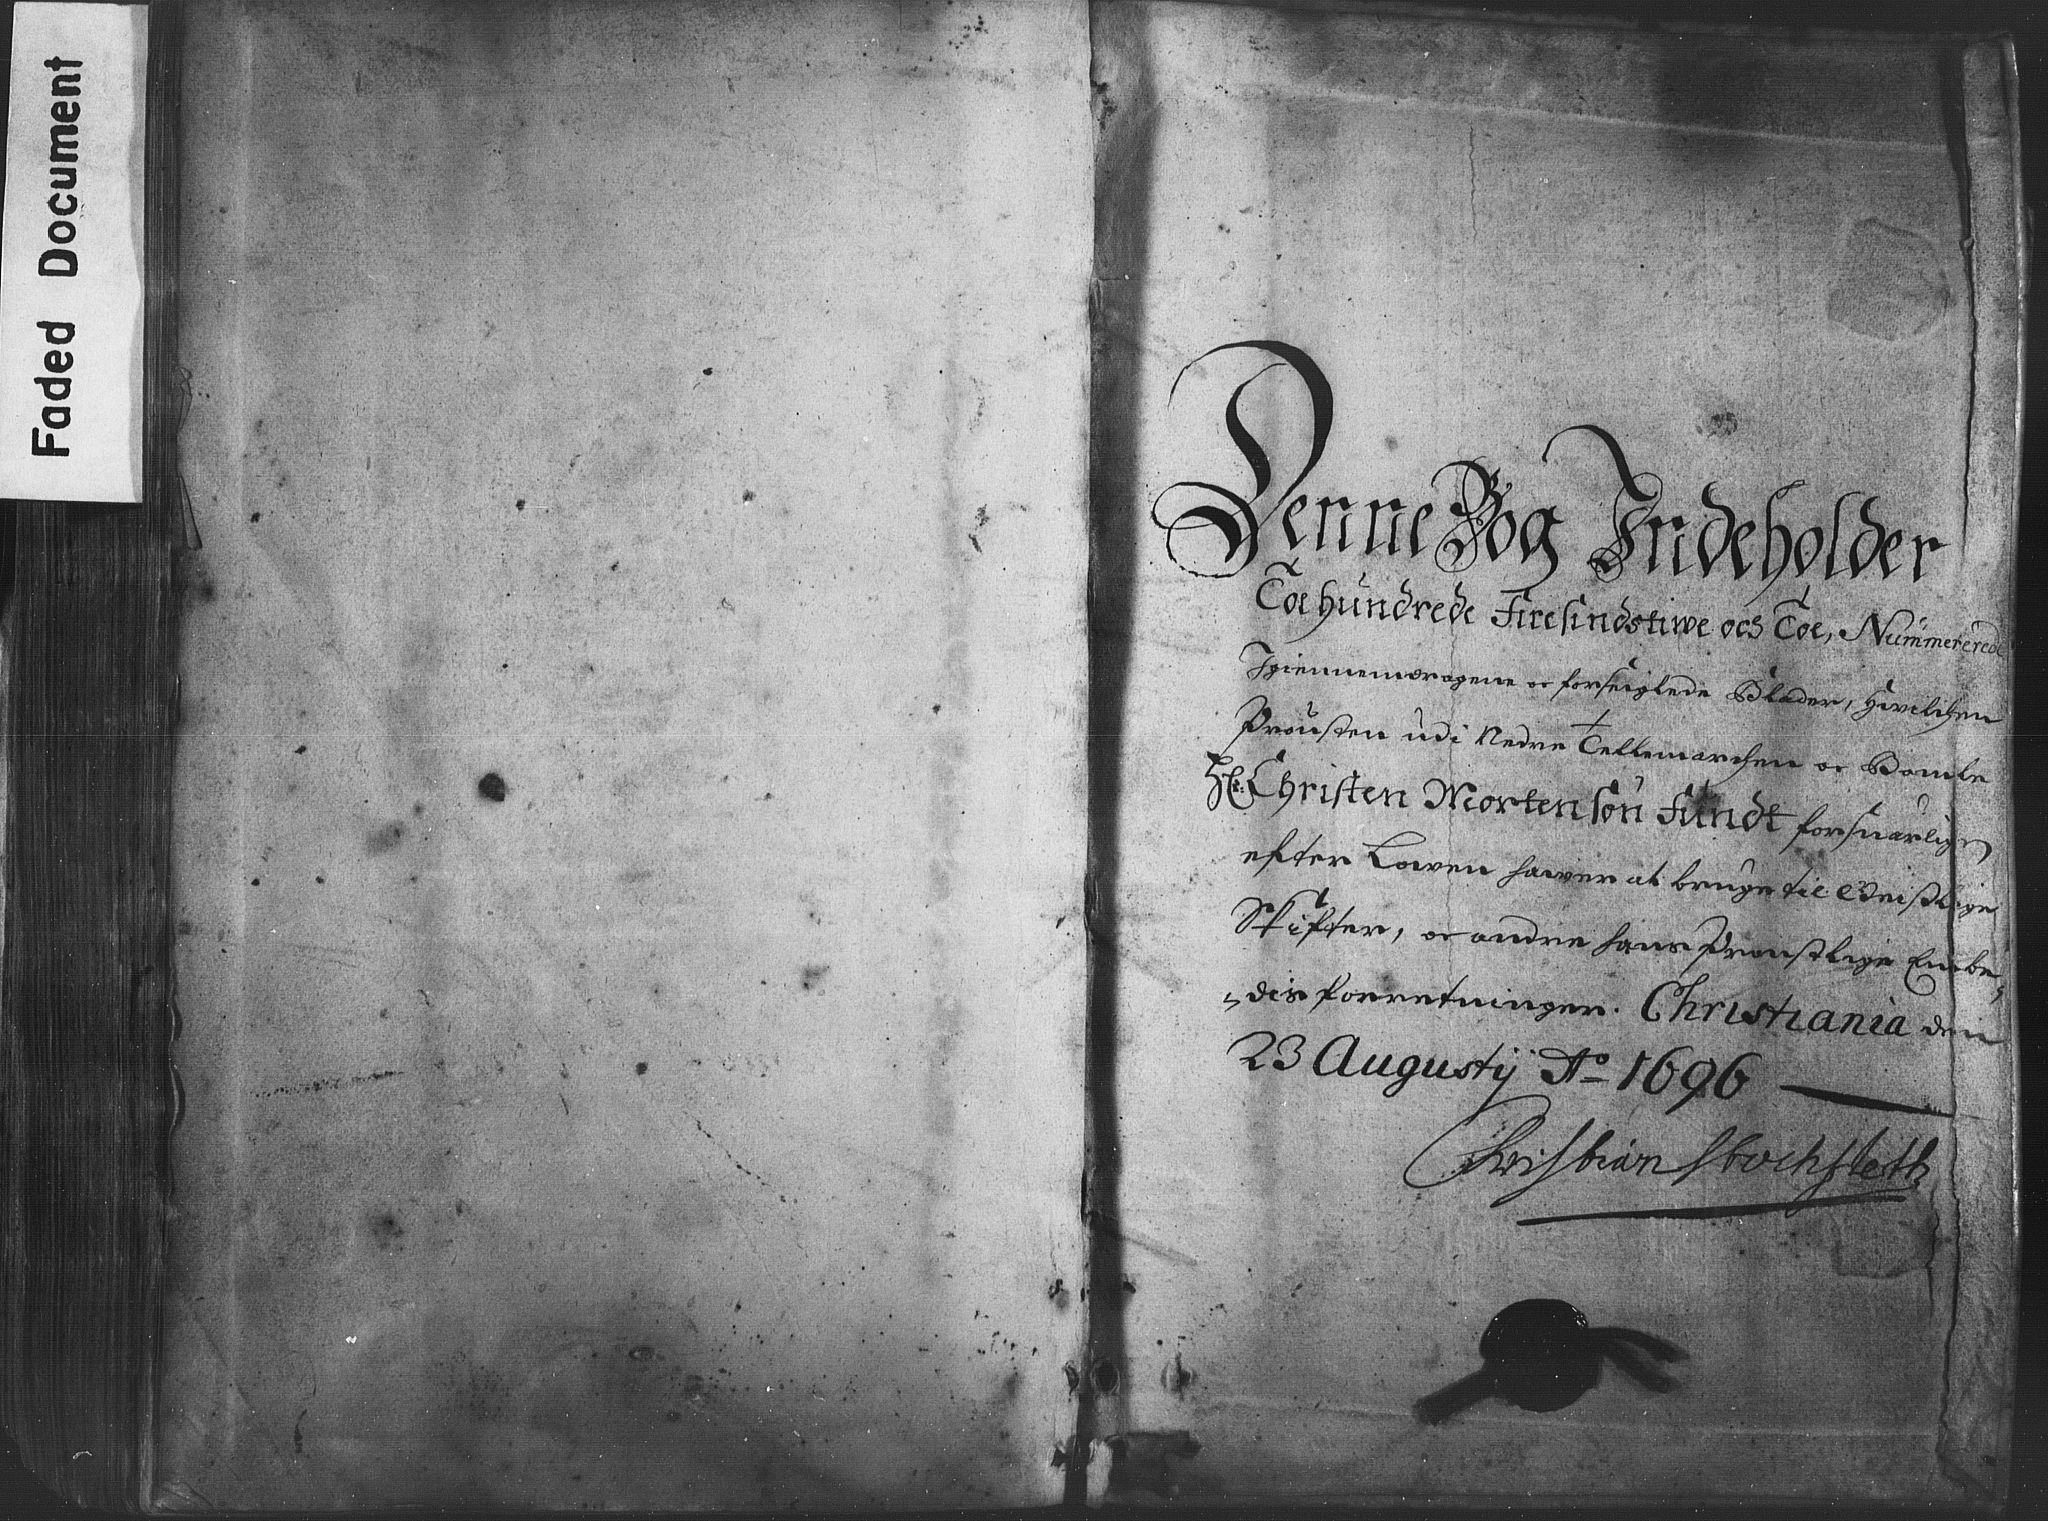 Faded Document
Denne Bog Indeholder
Toehundrede Firesindstiwe och Toe, Nummererede
Igiennemdragene oc forseiglede Blader, Hvilchen
Prousten udi Nedre Tellemarchen oc Bamble
Hr: Christen Mortensøn Fundt forsuarligen
efter Lowen hawer at bruge til Geistlige
Skifter, oc andre hans Proustlige Embe,
„dis forretninger. Christiania den
23 Augustij Ao 1696
Christian Stochfleth